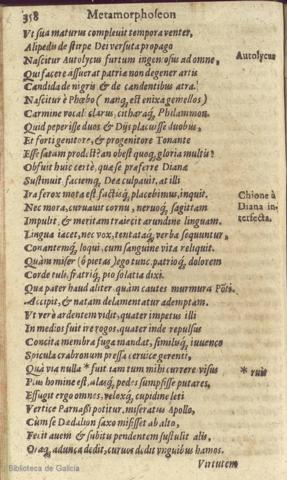 358 Metamorphoseon
Vt sua maturus compleuit tempora venter,
Alipedis de stirpe Dei versuta propago
Nascitur Autolycus furtum ingeniosus ad omne,
Autolycus
Qui facere assuerat patriæ non degener artis
Candida de nigris & de candentibus atra.
Nascitur è Phœbo (nanq; est enixa gemellos)
Carmine vocali clarus, citharaq; Philammon.
Quid peperisse duos & Dijs placuisse duobus,
Et forti genitore, & progenitore Tonante
Esse satam prodest? an obest quoq; gloria multis?
Obfuit huic certè, quæ se præferre Diana
Sustinuit faciemq; Deæ culpauit, at illi
Ira ferox mota est, factisq; placebimus, inquit.
Chione à
Nec mora, curuauit cornu, neruoq; sagittam
Diana in
Impulit, & meritam traiecit arundine linguam.
terfecta.
Lingua iacet, nec vox, tentataq; verba sequuntur,
Conantemq; loqui, cum sanguine vita reliquit.
Quàm miser ô pietas ego tunc patrioq; dolorem
Corde tuli, fratriq; pio solatia dixi.
Quæ pater haud aliter quàm cautes murmura Põti.
Accipit, & natam delamentatur ademptam.
Vt verò ardentem vidit, quater impetus illi
In medios fuit ire rogos, quater inde repulsus
Concita membra fugæ mandat, similisq; iuuenco
Spicula crabronum pressa ceruice gerenti,
Quà via nulla * fuit iam tum mihi currere visus
* ruit
Plus homine est, alasq; pedes sumpsisse putares,
Effugit ergo omnes, veloxq; cupidine leti
Vertice Parnassi potitur. miseratus Apollo,
Cum se Dædalion saxo misisset ab alto,
Fecit auem & subitis pendentem sustulit alis,
Oraq; adunca dedit, curuos dedit vnguibus hamos.
Virtutem
Biblioteca de Galicia